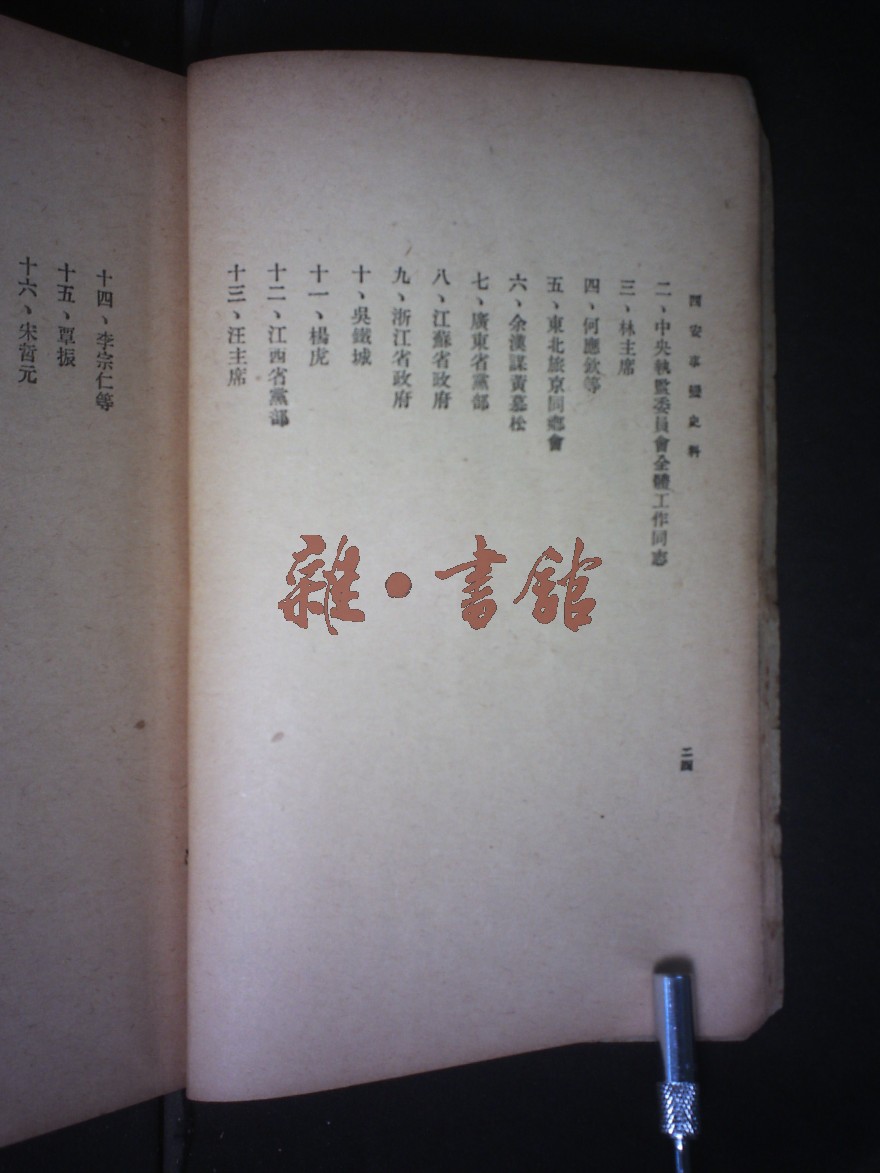 西安事變史料
二、中央執監委員會全體工作同志
三、林主席
四、何應欽等
五、東北旅京同鄉會
六、余漢謀黃慕松
七、廣東省黨部
八、江蘇省政府
九、浙江省政府
十、吳鐵城
十一、楊虎
十二、江西省黨部
十三、汪主席
二四
十四、李宗仁等
十五、覃振
十六、宋哲元
雜·書館